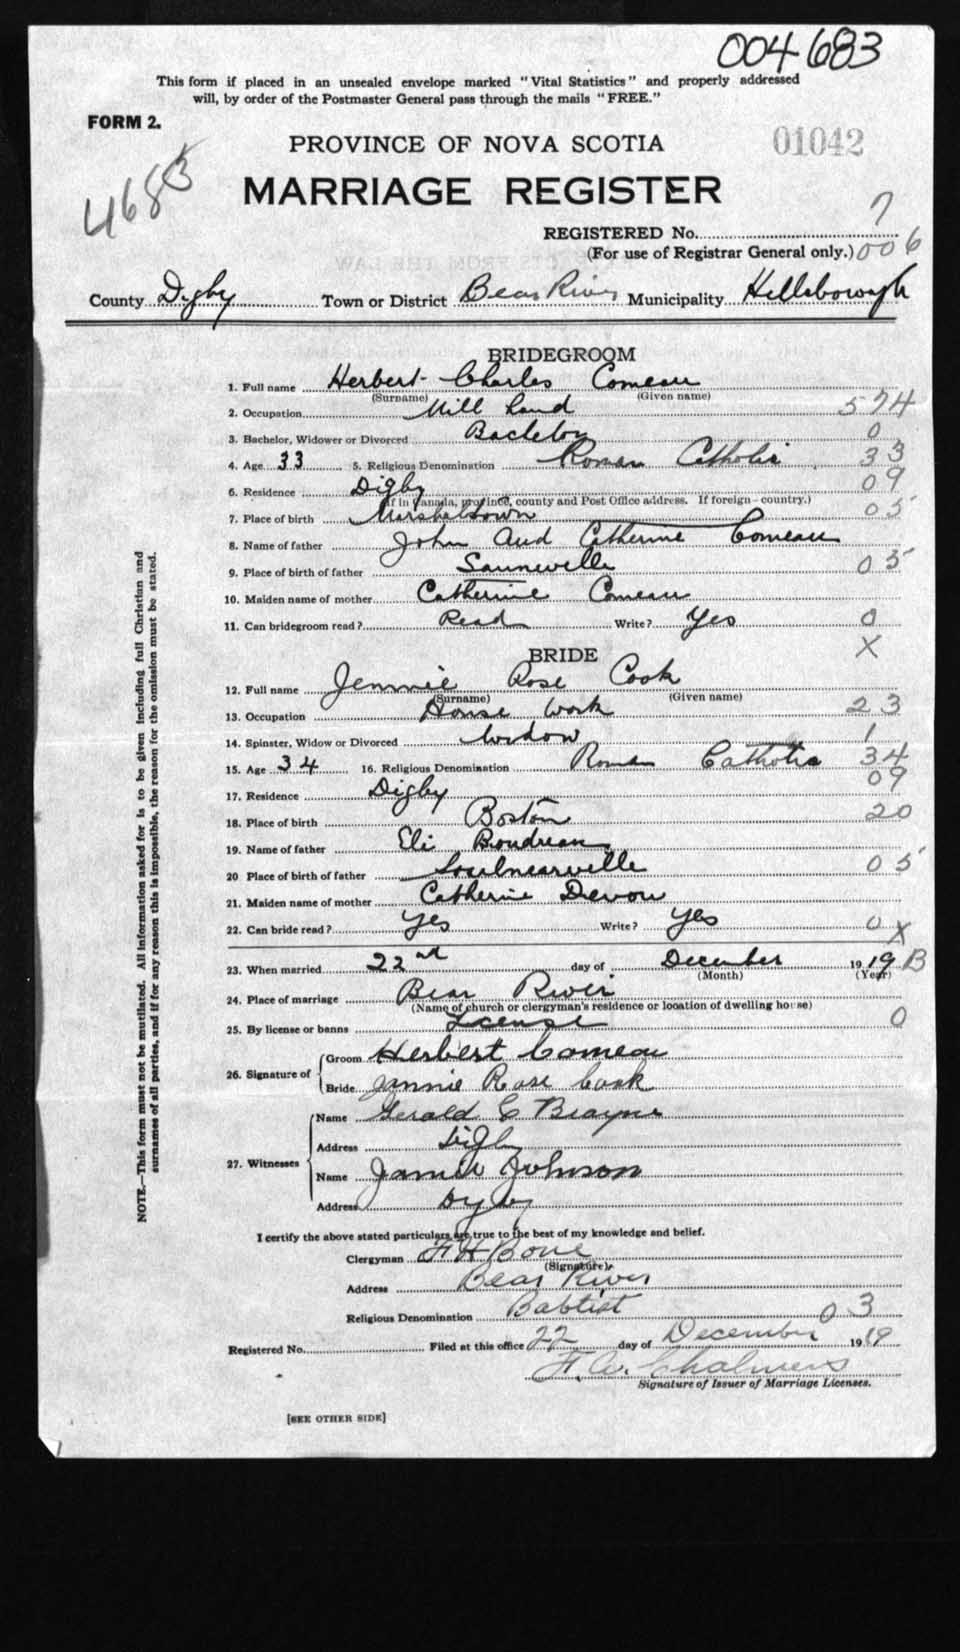 004683
This form if placed in an unsealed envelope marked "Vital Statistics" and properly addressed
will, by order of the Postmaster General pass through the mails "FREE."
FORM 2.
PROVINCE OF NOVA SCOTIA 01042
4683
MARRIAGE REGISTER
REGISTERED No. 7
(For use of Registrar General only.) 006
County Digby Town or District Bear River Municipality Hillsborough
BRIDEGROOM
1. Full name Herbert Charles Comeau
(Surname) (Given name)
2. Occupation Mill hand 574
3. Bachelor, Widower or Divorced Bachelor 0
4. Age 33 5. Religious Denomination Roman Catholic 33
6. Residence Digby 09
(If in Canada, province, county and Post Office address. If foreign - country.)
7. Place of birth Marshaltown 05
8. Name of father John and Catherine Comeau
9. Place of birth of father 05
10. Maiden name of mother Catherine Comeau
11. Can bridegroom read? Read Write? Yes 0
X
BRIDE
12. Full name Jennie Rose Cook
(Surname) (Given name)
13. Occupation House work 23
14. Spinster, Widow or Divorced Widow 1
15. Age 34 16. Religious Denomination Roman Catholic 34
17. Residence Digby 09
18. Place of birth Boston 20
19. Name of father Eli Boudreau
20 Place of birth of father 05
21. Maiden name of mother Catherine Devou
22. Can bride read? Yes Write? Yes 0 X
23. When married 22nd day of December 1919 B
(Month) (Year)
24. Place of marriage Bear River
(Name of church or clergyman's residence or location of dwelling house)
25. By license or banns License 0
26. Signature of
Groom Herbert Comeau
Bride Jennie Rose Cook
27. Witnesses
Name Gerald C
Address Digby
Name Johnson
Address Digby
I certify the above stated particulars are true to the best of my knowledge and belief.
Clergyman F H Bone
(Signature)
Address Bear River
Religious Denomination Babtist 03
Registered No. Filed at this office 22 day of December 1919
F. W. Chalmers
Signature of Issuer of Marriage Licenses.
[SEE OTHER SIDE]
NOTE.—This form must not be mutilated. All information asked for is to be given including full Christian and
surnames of all parties, and if for any reason this is impossible, the reason for the omission must be stated.